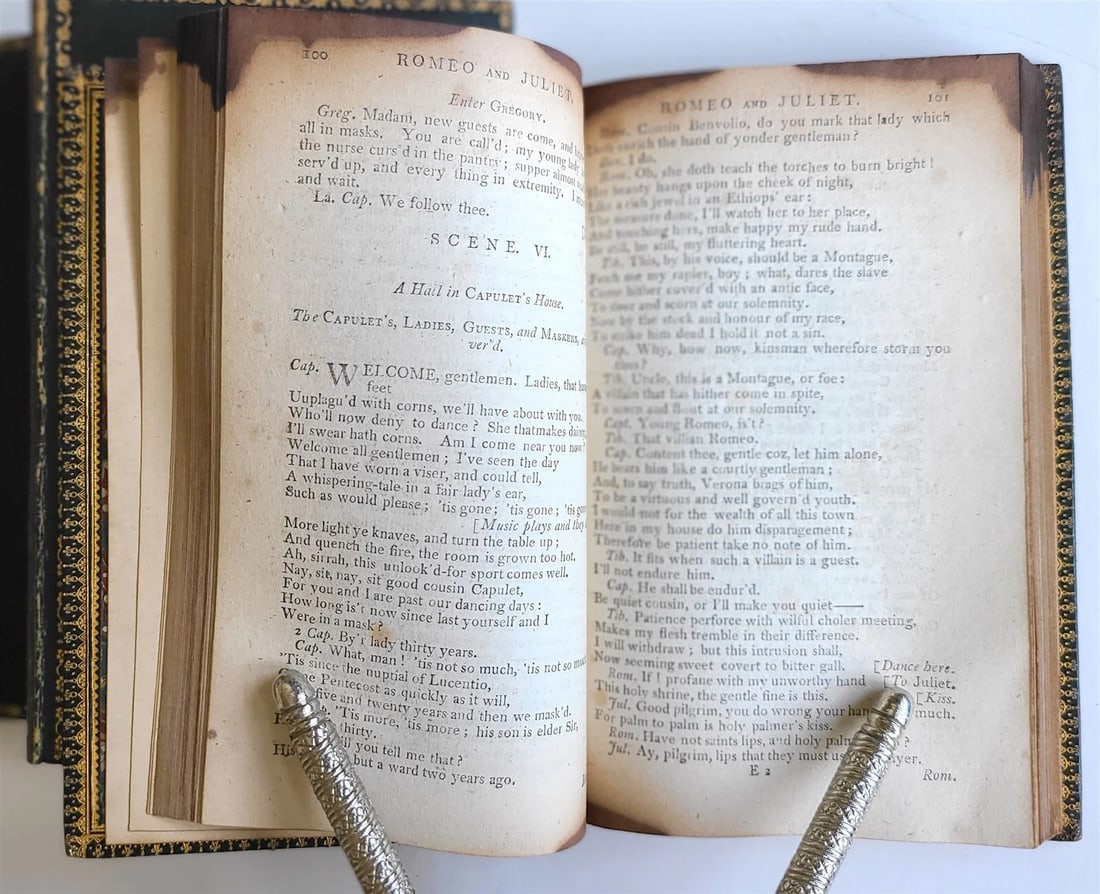 100
ROMEO AND JULIET.
Enter GREGORY.
Greg. Madam, new guests are come, and
all in masks. You are call'd; my young
the nurse curs'd in the pantry; supper almost
serv'd up, and every thing in extremity. I
and wait.
La. Cap. We follow thee.
SCENE. VI.
A Hall in CAPULET's House.
The CAPULET's, LADIES, GUESTS, and MASKERS,
ver'd.
Cap. WELCOME, gentlemen. Ladies, that
feet
Uuplagu'd with corns, we'll have about with you.
Who'll now deny to dance? She thatmakes
I'll swear hath corns. Am I come near you now?
Welcome all gentlemen; I've seen the day
That I have worn a viser, and could tell,
A whispering-tale in a fair lady's ear,
Such as would please; 'tis gone; 'tis gone; 'tis
[Music plays and they
More light ye knaves, and turn the table up;
And quench the fire, the room is grown too hot.
Ah, sirrah, this unlook'd-for sport comes well.
Nay, sit, nay, sit good cousin Capulet,
For you and I are past our dancing days:
How long is't now since last yourself and I
Were in a mask?
2 Cap. By'r lady thirty years.
Cap. What, man! 'tis not so much, 'tis not so
'Tis since the nuptial of Lucentio,
Pentecost as quickly as it will,
five and twenty years and then we mask'd.
'Tis more, 'tis more; his son is elder Sir,
thirty.
you tell me that?
His but a ward two years ago.
ROMEO AND JULIET. 101
Cousin Benvolio, do you mark that lady which
enrich the hand of yonder gentleman?
I do.
Oh, she doth teach the torches to burn bright!
beauty hangs upon the cheek of night,
Like a rich jewel in an Ethiops' ear:
The measure done, I'll watch her to her place,
And touching hers, make happy my rude hand.
Be still, be still, my fluttering heart.
Tib. This, by his voice, should be a Montague,
Fetch me my rapier, boy; what, dares the slave
Come hither cover'd with an antic face,
To sneer and scorn at our solemnity.
Now by the stock and honour of my race,
To strike him dead I hold it not a sin.
Cap. Why, how now, kinsman wherefore storm you
thus?
Tib. Uncle, this is a Montague, or foe:
A villain that has hither come in spite,
To scorn and flout at our solemnity.
Capt. Young Romeo, is't?
Tib. That villian Romeo.
Cap. Content thee, gentle coz, let him alone,
He bears him like a courtly gentleman;
And, to say truth, Verona brags of him,
To be a virtuous and well govern'd youth.
I would not for the wealth of all this town
Here in my house do him disparagement;
Therefore be patient take no note of him.
Tib. It fits when such a villain is a guest.
I'll not endure him.
Cap. He shall be endur'd.
Be quiet cousin, or I'll make you quiet——
Tib. Patience perforce with wilful choler meeting,
Makes my flesh tremble in their difference.
I will withdraw; but this intrusion shall,
Now seeming sweet covert to bitter gall. [Dance here.
Rom. If I profane with my unworthy hand [To Juliet.
This holy shrine, the gentle fine is this. [Kiss.
Jul. Good pilgrim, you do wrong your much.
For palm to palm is holy palmer's kiss.
Rom. Have not saints lips, and holy ?
Jul. Ay, pilgrim, lips that they must
E 2
Rom.